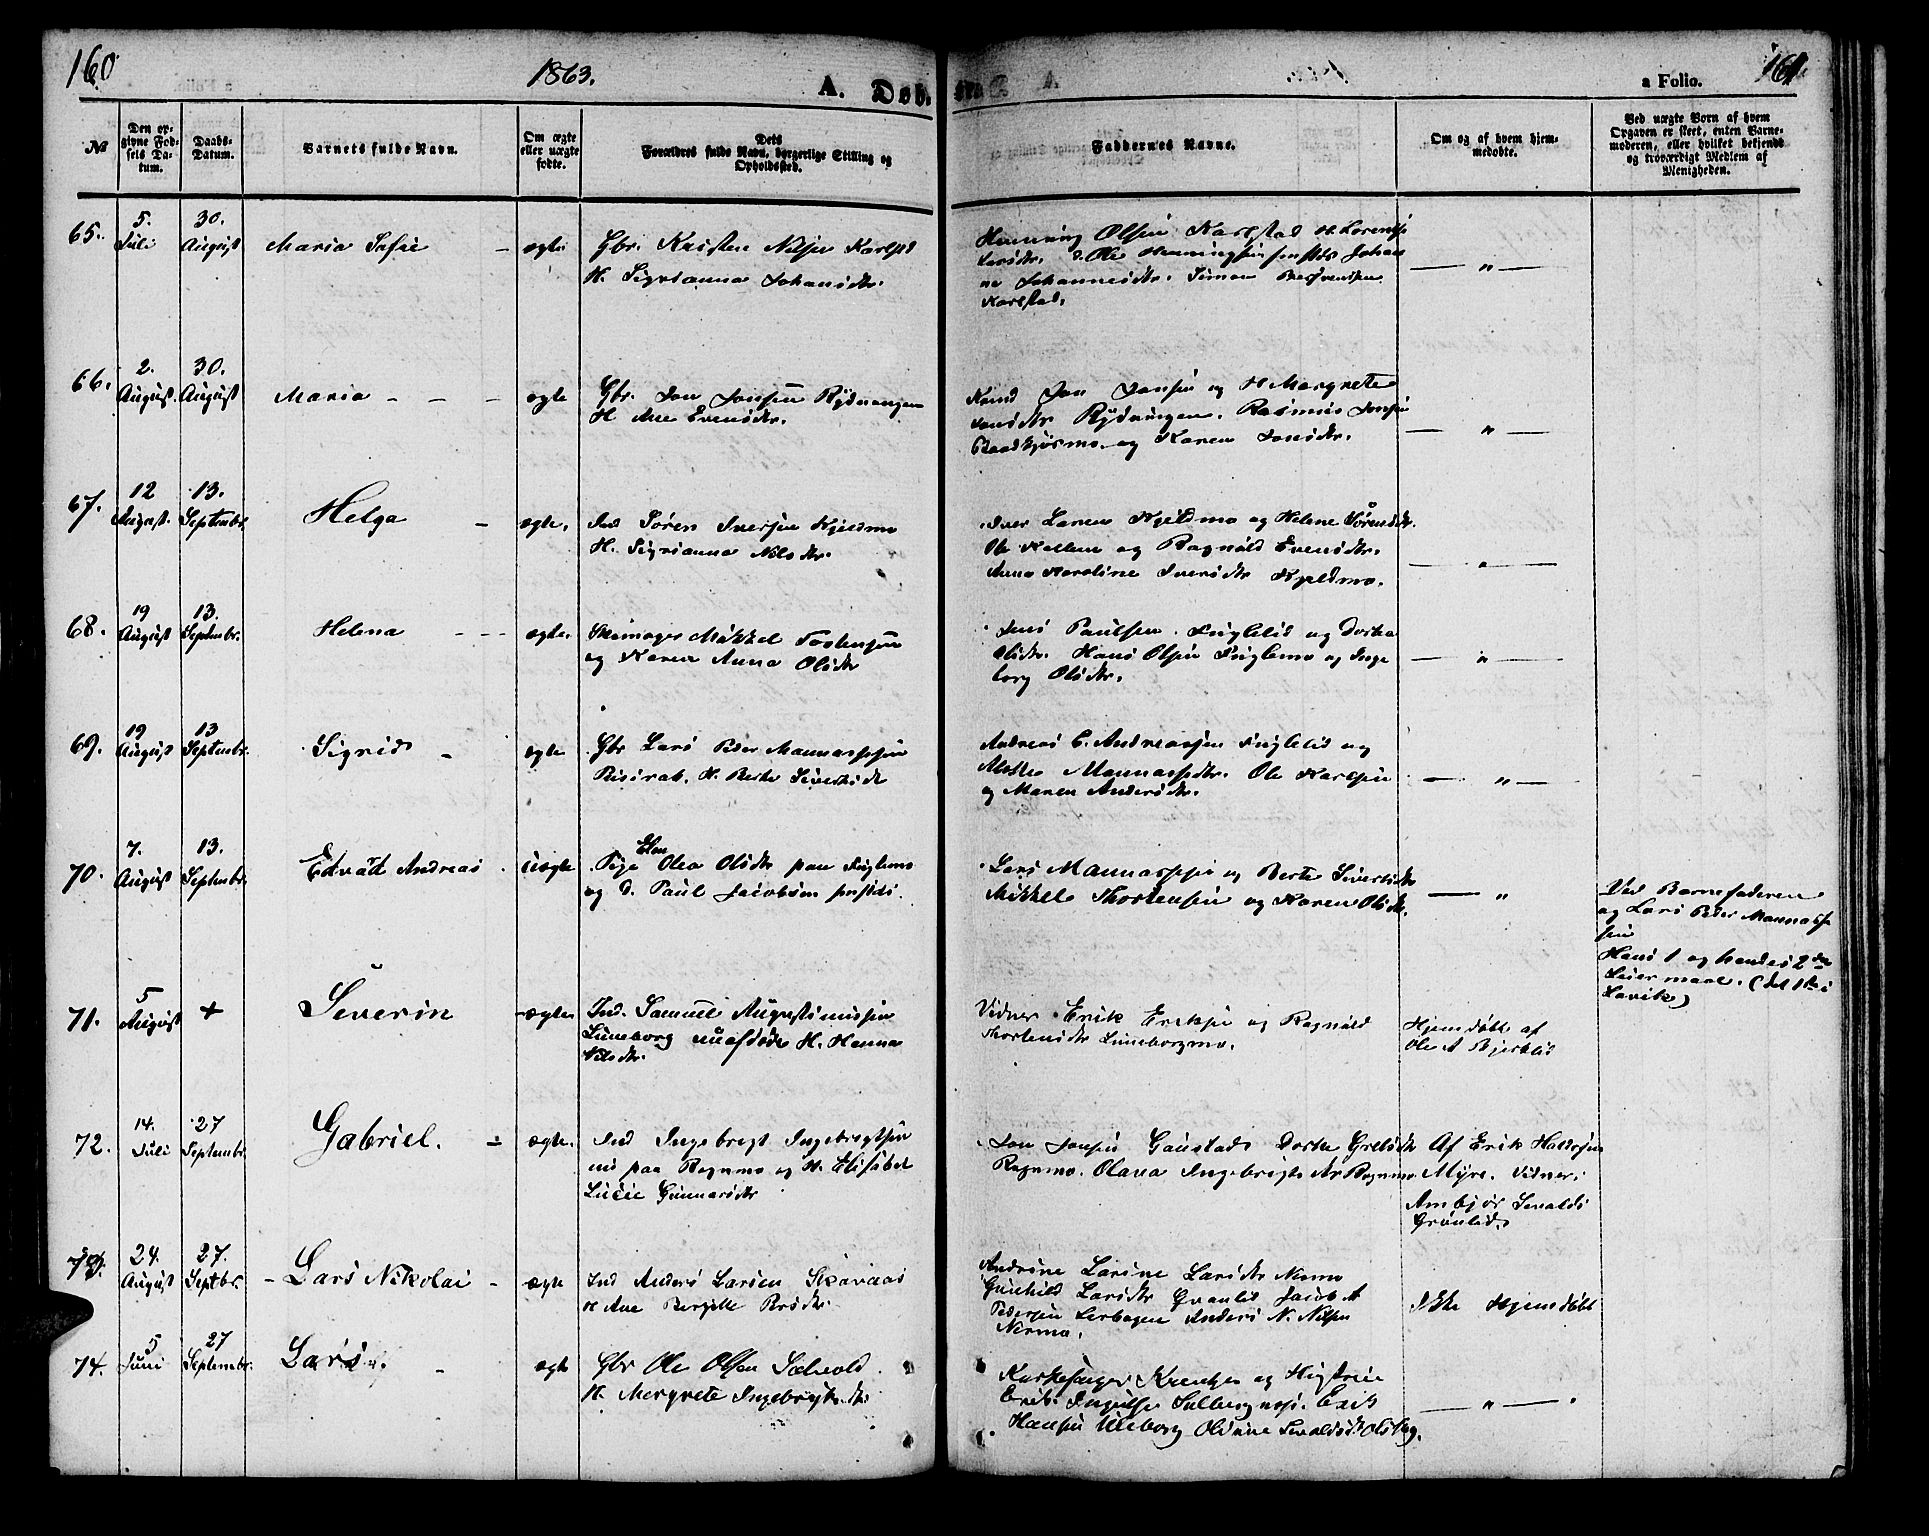 160
1863.
A. Døb
161
a Folio.
№
Den opgivne Fødsels Datum.
Daabs-Datum.
Barnets fulde Navn.
Om ægte eller uægte fødte.
Dets Forældres fulde Navn, borgerlige Stilling og Opholdssted.
Faddernes Navne.
Om og af hvem hjemmedøbte.
Ved uægte Børn af hvem Opgaven er skeet, enten Barnemoderen, eller hvilket bekjendt og troværdigt Medlem af Menigheden.
65.
5. Juli
30. August
Maria Sofie
ægte
Gbr. Kristen Nilsen Karlstad
H. Sigrianna Johansdtr.
Henning Olsen Karlstad H. Lorentse
Larsdtr. Ole Henningsen sstds Johan
na Johannesdtr. Simon
Karlstad.
— " —
66.
2. August
30. August
Maria
ægte
Gbr. Jon Jonsen Rydningen
H Ane Evensdtr.
Jon Jonsen og H Margrete
Jonsdtr Rydningen. Rasmus Jonsen
og Karen Jonsdtr.
— " —
67.
12 August.
13. Septembr.
Helga
ægte.
Ind Søren Iversen Kjeldmo
H. Sigrianna Nilsdtr.
Iver Larsen Kjeldmo og Helene Sørensdtr.
Ole Kollem og Ragnild Evensdtr.
Anna Karoline Iversdtr Kjeldmo.
— " —
68.
19 August
13. Septembr.
Helena
ægte.
Skomager Mikkel Tostensen
og Karen Anna Olsdtr
Jens Paulsen Fuglelid og Dorthea
Olsdtr. Hans Olsen Fuglemo og Inge
borg Olsdtr.
— " —
69.
19 August
13 Septembr.
Sigrid
ægte
Gbr Lars Peder Mannassesen
H. Berte Sivertsdt
Andreas C. Andreassen Fuglelid og
Mannassedtr. Ole Karlsen
og Maren Andersdtr.
— " —
70.
7. August
13. Septembr.
Edvad Andreas
uægte
Pige Elen Olea Olsdtr paa Fuglemo
og P. Paul Jacobsen sstds
Lars Mannassesen og Berte Sivertsdtr
Mikkel Thorstensen og Karen Olsdtr.
— "
Ved Barnefaderen
og Lars Peder Mannasse
sen
Hans 1 og hendes 2den
Leiermaal. (det 1ste i
Lavik)
71.
5 August
+
Severin
ægte
Ind. Samuel Augustinussen
Luneborg H. Hanna
Nilsdtr.
Vidner Erik Eriksen og Ragnild
Thorstensdtr Luneborgmo.
Hjemdøbt af
Ole A Bjerklid
72.
14. Juli
27 Septembr.
Gabriel.
ægte.
Ind Ingebregt Ingebregtsen
nu paa Rognmo og H. Elisabet
Lucie Gunnarsdtr
Jon Jonsen Gaustad Dorte Grelsdtr
Rognmo. Olava Ingebregtsdtr Rognmo
Af Erik Haldosen
Myre. Vidner:
Ambjør Sevalds
Grønlid.
73.
24. August
27. Septbr.
Lars Nikolai
ægte
Ind Anders Larsen Skavaas
H Ane Bergitte
Andrine Larine Larsdtr Nermo
Gunhild Larsdtr Grønlid Jacob A
Pedersen Anders N. Nilsen
Nermo.
Ikke Hjemdøbt
74.
5 Juni
27 Septembr.
Lars
ægte
Gbr Ole Olsen Sætvold
H. Mergrete Ingebrigtsdtr
Kirkesanger og Hustrue
Erik
Hansen Oldine Sevaldsdt Olsborg.
— " —